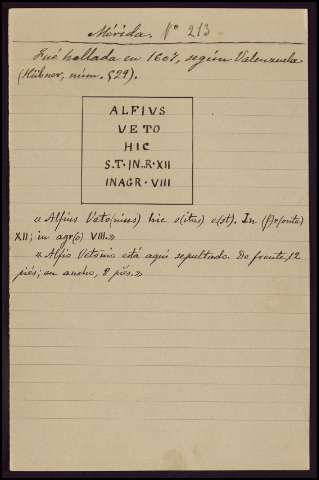 Mérida. Nº 213
Fué hallada en 1607, según Valenzuela
(Hübner, núm. 529).
ALFIVS
VETO
HIC
S.T.IN..R.XII
INAGR.VIII
« Alfius Veto(nius) hic s(itus) e(st). In (f)r(onte)
XII; in agr(o) VIII.»
« Alfio Vetonio está aquí sepultado. De frente, 12
piés; en ancho, 8 piés.»